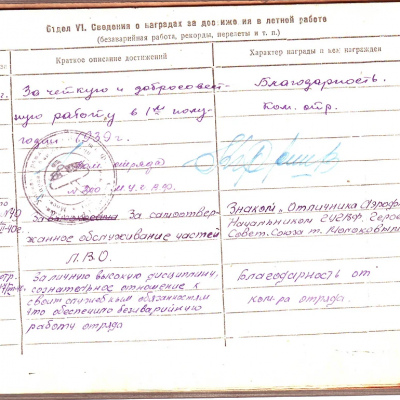 Отдел VI. Сведения о наградах за достижения в летной работе
(безаварийная работа, рекорды, перелеты и т. п.)
Краткое описание достижений
Характер награды и кем награжден
За чёткую и добросовест-
ную работу в 1ом полу-
годии 1939 г.
Благодарность.
Ком. отр.
отряда
За самоотвер-
жанное обслуживание частей
Л.В.О.
Знаком „Отличника Аэрофл
Начальником ГУГВФ. Геро
Совет. Союза т. Молоковым
За личную высокую дисциплину,
сознательное отношение к
своим служебным обязанностям
что обеспечило безаварийную
работу отряда
Благодарность от
ком-ра отряда.